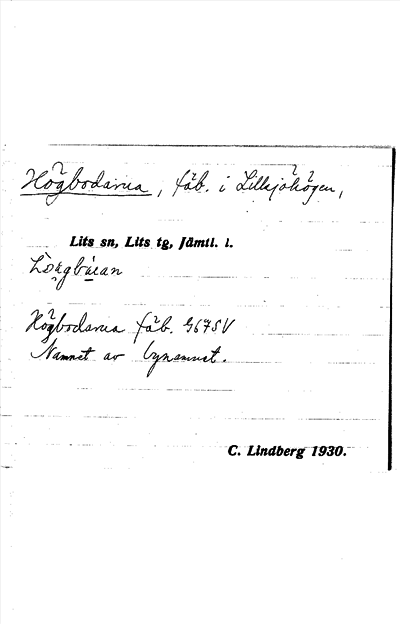 Högbodarna, fäb. i Lillsjöhögen,
Lits sn, Lits tg, Jämtl. l.
Högbodarna fäb. G67SV
Namnet av bynamnet.
C. Lindberg 1930.